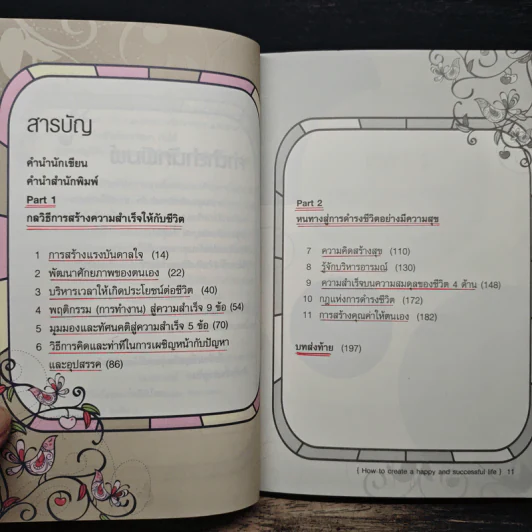 สารบัญ
คำนำนักเขียน
คำนำสำนักพิมพ์
Part 1
กลวิธีการสร้างความสำเร็จให้กับชีวิต
1 การสร้างแรงบันดาลใจ (14)
2 พัฒนาศักยภาพของตนเอง (22)
3 บริหารเวลาให้เกิดประโยชน์ต่อชีวิต (40)
4 พฤติกรรม (การทำงาน) สู่ความสำเร็จ 9 ข้อ (54)
5 มุมมองและทัศนคติสู่ความสำเร็จ 5 ข้อ (70)
6 วิธีการคิดและท่าทีในการเผชิญหน้ากับปัญหา
และอุปสรรค (86)
Part 2
หนทางสู่การดำรงชีวิตอย่างมีความสุข
7 ความคิดสร้างสุข (110)
8 รู้จักบริหารอารมณ์ (130)
9 ความสำเร็จบนความสมดุลของชีวิต 4 ด้าน (148)
10 กฎแห่งการดำรงชีวิต (172)
11 การสร้างคุณค่าให้ตนเอง (182)
บทส่งท้าย (197)
( How to create a happy and successful life ) 11